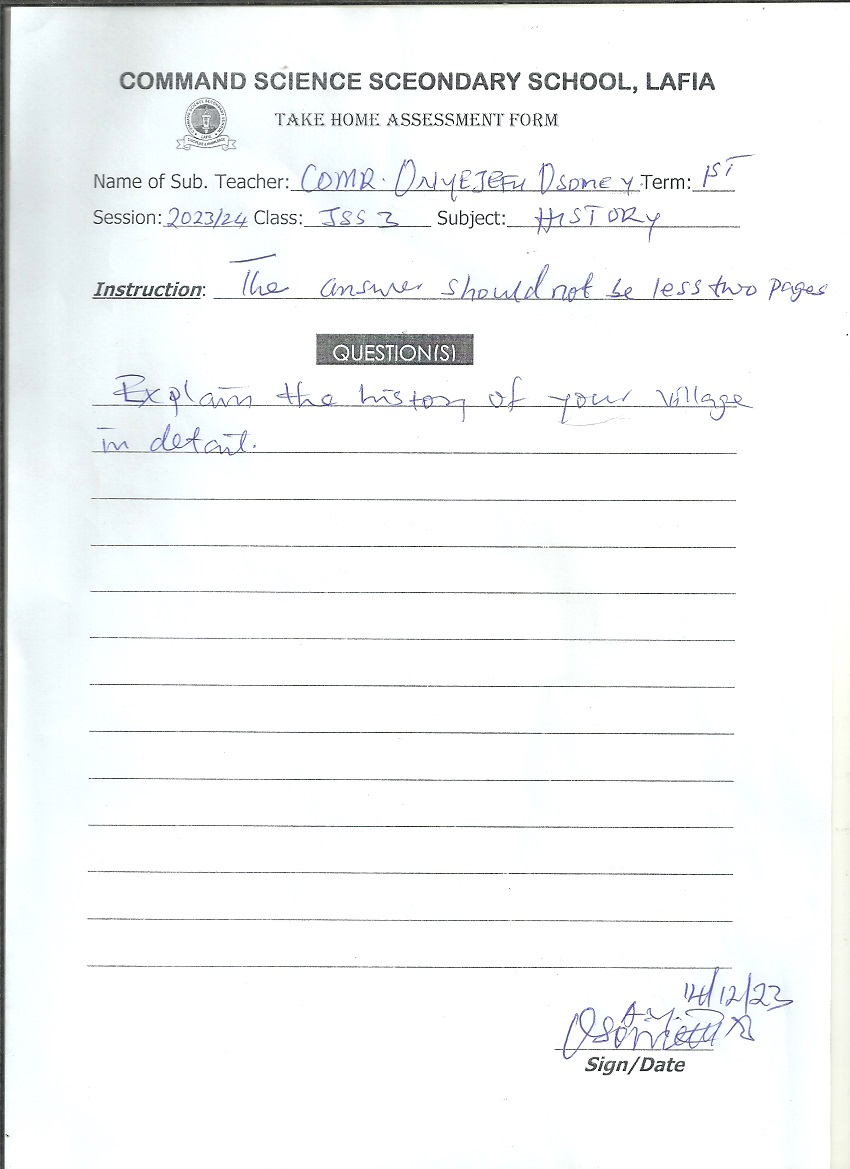 COMMAND SCIENCE SCEONDARY SCHOOL, LAFIA
TAKE HOME ASSESSMENT FORM
Name of Sub. Teacher: COMR. ONYEJEFU Term: 1ST
Session: 2023/24 Class: JSS 3 Subject: HISTORY
Instruction: The answer should not be less two pages
QUESTION(S)
Explain the history of your village
in detail.
14/12/23
Sign/Date